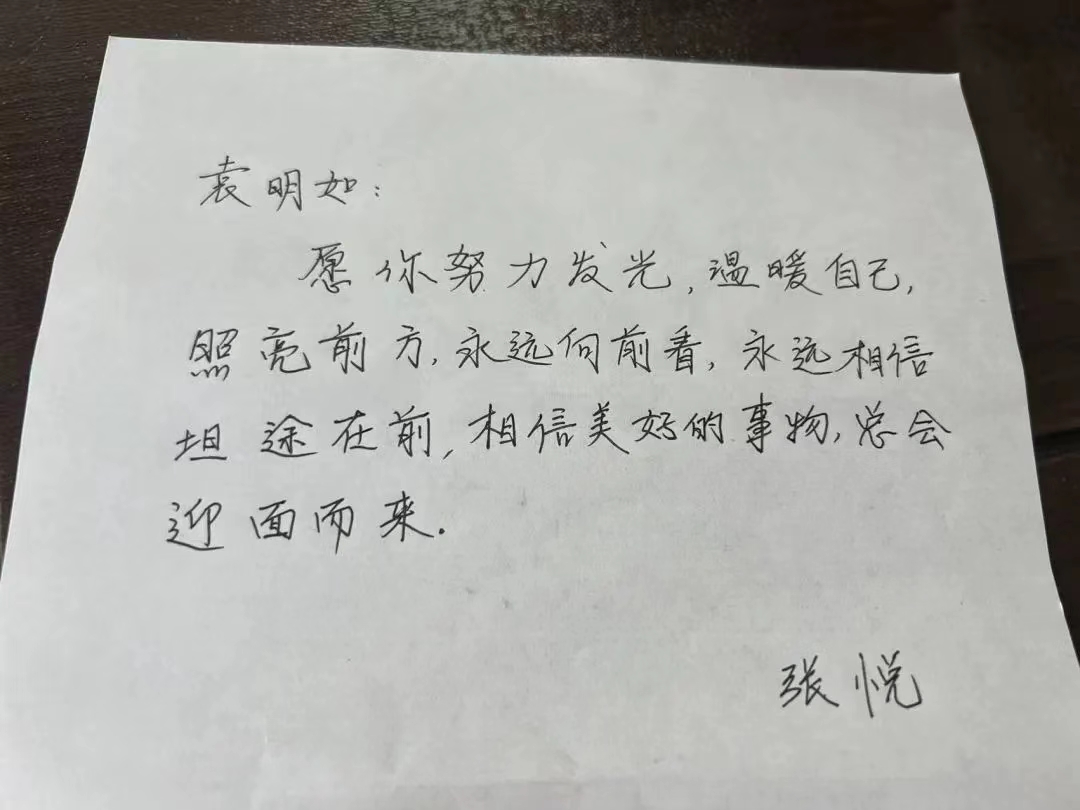 袁明如:
愿你努力发光,温暖自己,
照亮前方,永远向前看,永远相信
坦途在前,相信美好的事物,总会
迎面而来.
张悦